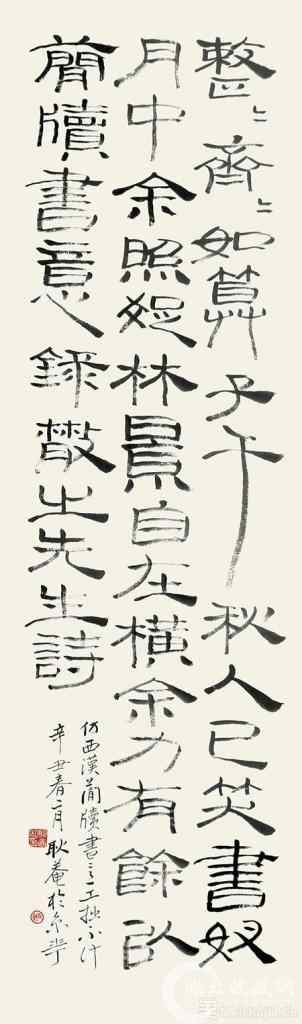 整〻齊〻如算子千秋人已笑書奴
月中余照疏林景自在橫余力有餘以
簡牘書意錄散之先生詩
仿西漢簡牘書之工拙不計
辛丑春二月耿菴於京華